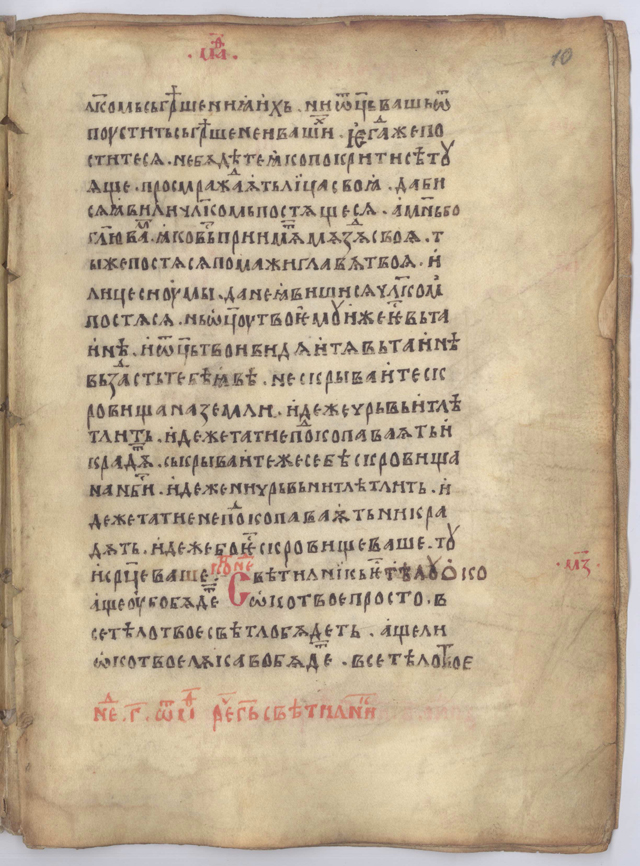 10
лкомьсьгрѣшениꙗихь. ниѡ҃цьвашьѿ
поуститьсьгрѣшенеиваши. Егдажепо
ститесѧ. небѫдѣтеꙗкопокритисѣтꙋ
ѫще. просмражаѫтьліцасвоꙗ. даби
сѧꙗвилиꙋчл҃комьпостѧщесѧ. аминьбо
гл҃ювамꙗковьприимѫтмѫзѫсвоѫ. т
ыжепостѧсѧпомажиглавѫтвоѫ. и
лицесиоумы. данеꙗвишисѧчл҃комꙗ
постѧсѧ. ньѡ҃цоутвоемоуижеѥсвьта
инѣ. иѡ҃цьтвоивидѧитѧвьтаинѣ
вьздастьтебѣꙗвѣ. нескрываитеск
ровищаназемли. идежечрьвьитлѣ
тлить. идежетатиеподкопаваѫтьи
крадѫт. ськрываитежесебѣскровища
нан҃бси. идеженичрьвьнитлѣтлить. и
дежетатиенеподкопаваѫтьникра
дѫть. идежебоѥсскровищеваше. тꙋ
исрц҃еваше. Свѣтилникьѥстѣлоуѡко
· м҃з ·
ащеоубобѫдет ѡкотвоепросто. в
сетѣлотвоесвѣтлобѫдеть. ащели
ѡкотвоелѫкавобѫдет. всетѣлотвое
не҃д. г҃. ѿм҃ реч҃егьсвѣтилник